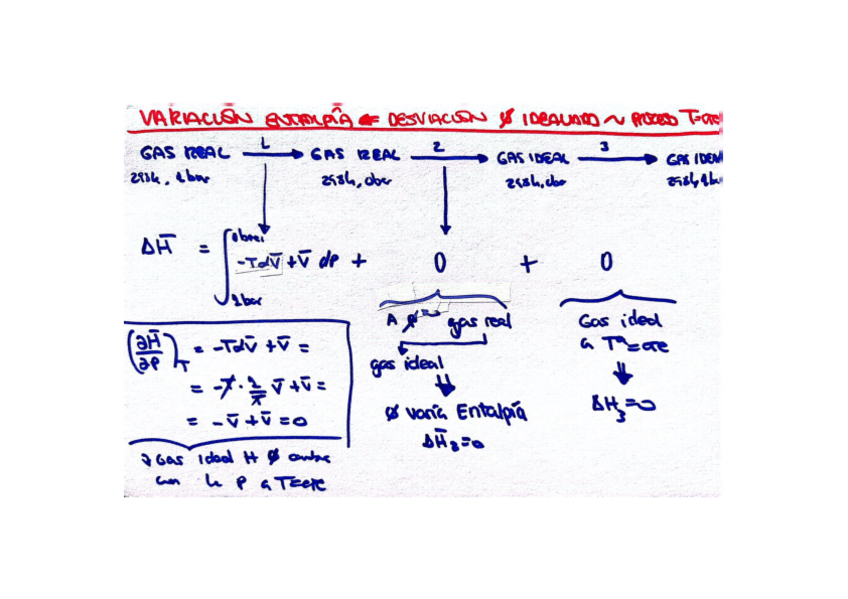 VARIACIÓN ENTALPÍA DESVIACIÓN Ø IDEALIDAD ~ PROCESO T=cte
GAS REAL 1 → GAS REAL 2 → GAS IDEAL 3 → GAS IDEAL
298k, 1bar 298k, 0bar 298k, 0bar 298k, 1bar
ΔH̄ = ∫ 0bar 1bar -TαV̄ + V̄ dP + 0 + 0
A gas real
gas ideal
Ø varía Entalpía
ΔH̄₂=0
Gas ideal
a Tª=cte
ΔH₃=0
(∂H̄/∂P)T = -TαV̄ + V̄ =
= -T · 1/T V̄ + V̄ =
= -V̄ + V̄ = 0
Gas ideal H Ø cambia
con la P a T=cte